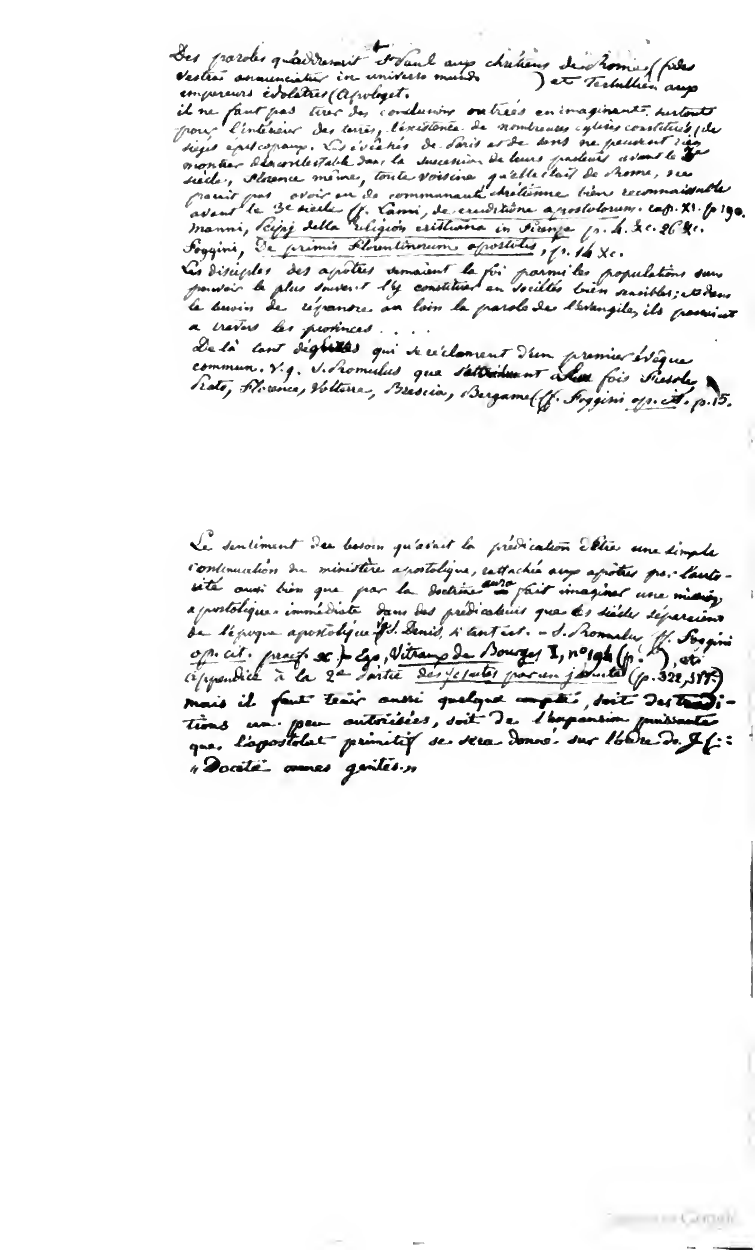 Des paroles qu'adressait St Paul aux chrétiens de Rome (fides
vestra annunciatur in universo mundo ) et Tertullien aux
empereurs idolâtres (Apologet.
il ne faut pas tirer des conclusions outrées en imaginant, surtout
pour l'intérieur des terres, l'existence de nombreuses églises constituées (de
sièges épiscopaux. Les évêchés de Paris et de Sens ne peuvent rien
montrer d'incontestable dans la succession de leurs pasteurs avant le
siècle, Florence même, toute voisine qu'elle était de Rome, ne
parait pas avoir eu de communauté chrétienne bien reconnaissable
avant le 3e siècle (cf. Lami, de eruditione apostolorum. cap. XI. p. 190.
Manni, della religion cristiana in Firenze p. 4. &c. 26 &c.
Foggini, De primis Florentinorum apostolis, p. 14 &c.
Les disciples des apôtres semaient la foi parmi les populations sans
pouvoir le plus souvent l'y constituer en sociétés bien sensibles; et dans
le besoin de répandre au loin la parole de l'évangile, ils passaient
à travers les provinces . . . .
De là tant d'églises qui se réclament d'un premier évêque
commun. V.g. S. Romulus que s'attribuent à la fois Fiesole,
Prato, Florence, Volterre, Brescia, Bergame (cf. Foggini op. cit. p. 15.
Le sentiment du besoin qu'avait la prédication d'être une simple
continuation du ministère apostolique, rattachée aux apôtres par l'auto-
rité aussi bien que par la doctrine aura fait imaginer une mission
apostolique immédiate dans des prédicateurs que des siècles séparaient
de l'époque apostolique (S. Denis, si tant est. - S. Romulus, cf. Foggini
op. cit. praef. X) - Ego, Vitraux de Bourges I, n° 194 (p. ), et
appendice à la 2de Partie des Jésuites par un jésuite (p. 322,
mais il faut tenir aussi quelque compte, soit des tradi-
tions un peu autorisées, soit de l'expansion puissante
que l'apostolat primitif se sera donné sur l'ordre de J.C.:
"Docete omnes gentes."
Google